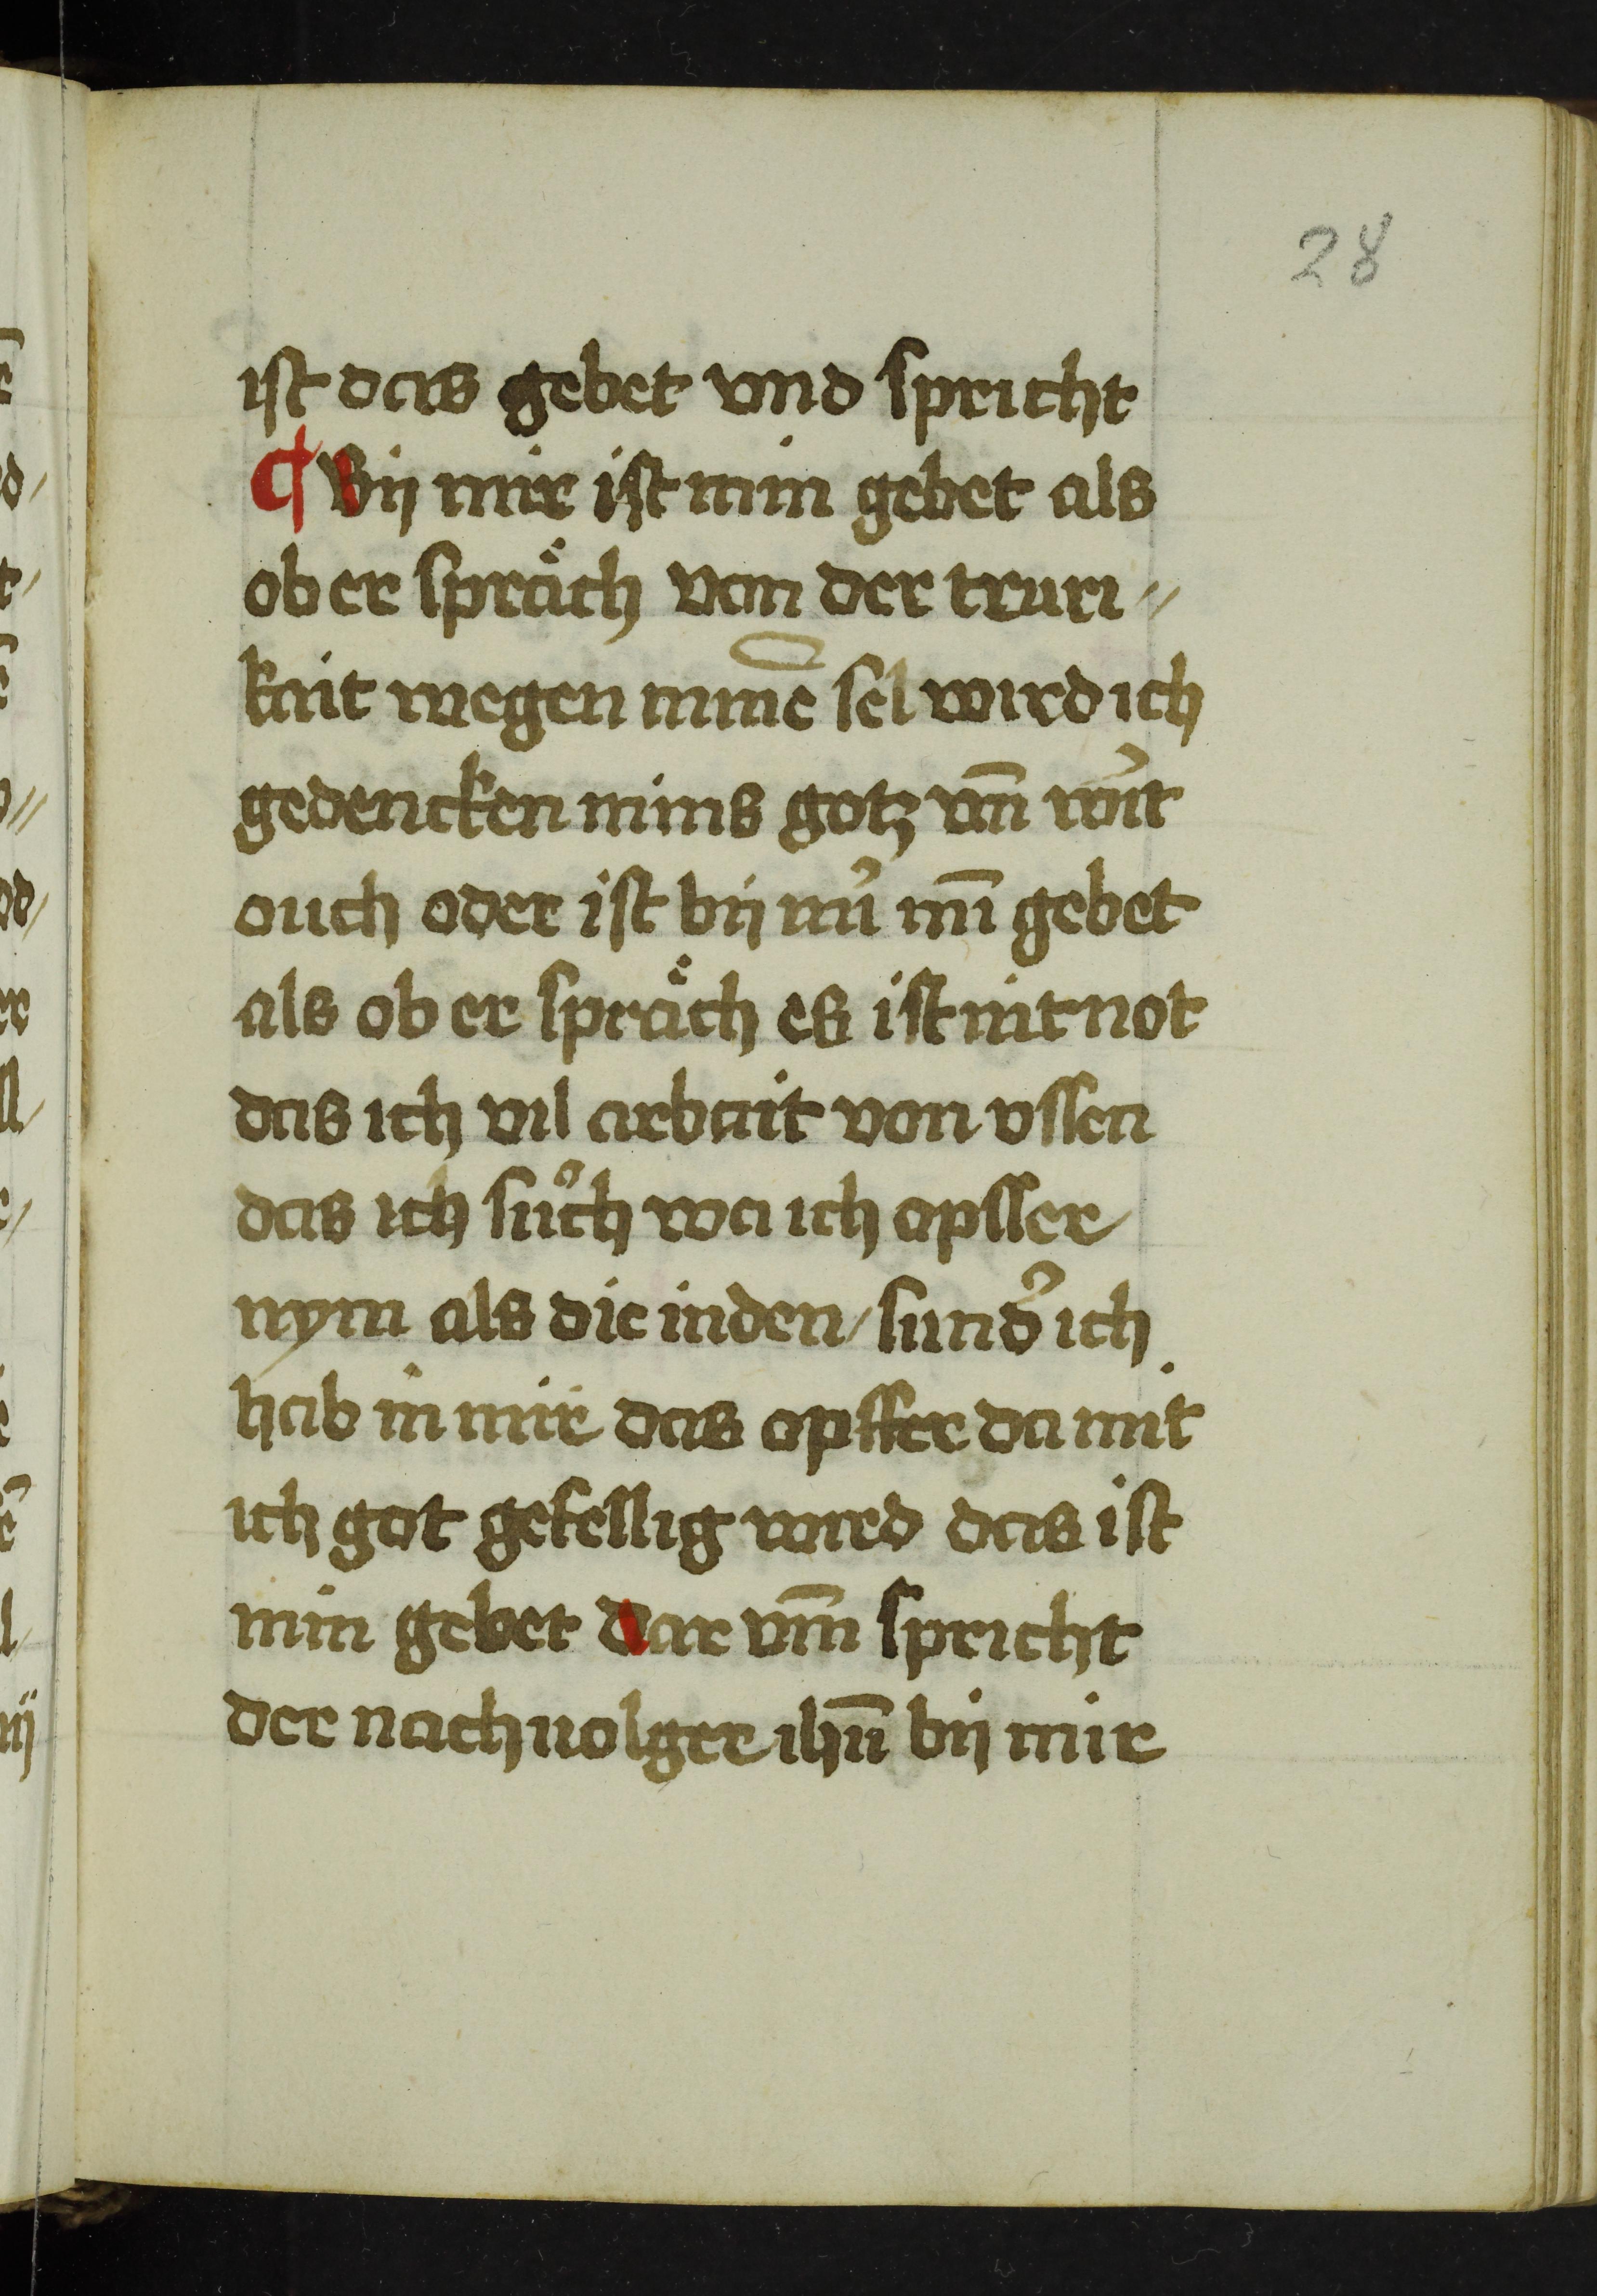 28
ist das gebet vnd spricht
¶ Bij mir ist min gebet als
ob er spräch von der truri〃
kait wegen minē sel wird ich
gedencken mins gotz vn̄ wirt
ouch oder ist bij mir mī gebet
als ob er spräch es ist nit not
das ich vil arbait von vssen
das ich sůch wa ich opffer
nym als die inden / sundʼ ich
hab in mir das opffer da mit
ich got gefellig wird das ist
min gebet dar vm̄ spricht
der nach uolger ihū bij mir